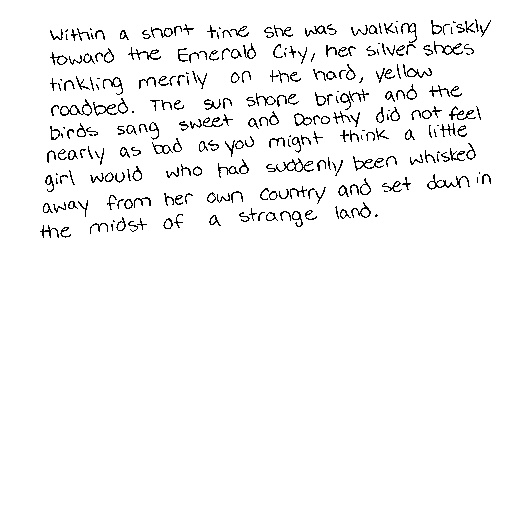 Within a short time she was walking briskly
toward the Emerald City, her silver shoes
tinkling merrily on the hard, yellow
roadbed. The sun shone bright and the
birds sang sweet and Dorothy did not feel
nearly as bad as you might think a little
girl would who had suddenly been whisked
away from her own country and set down in
the midst of a strange land.